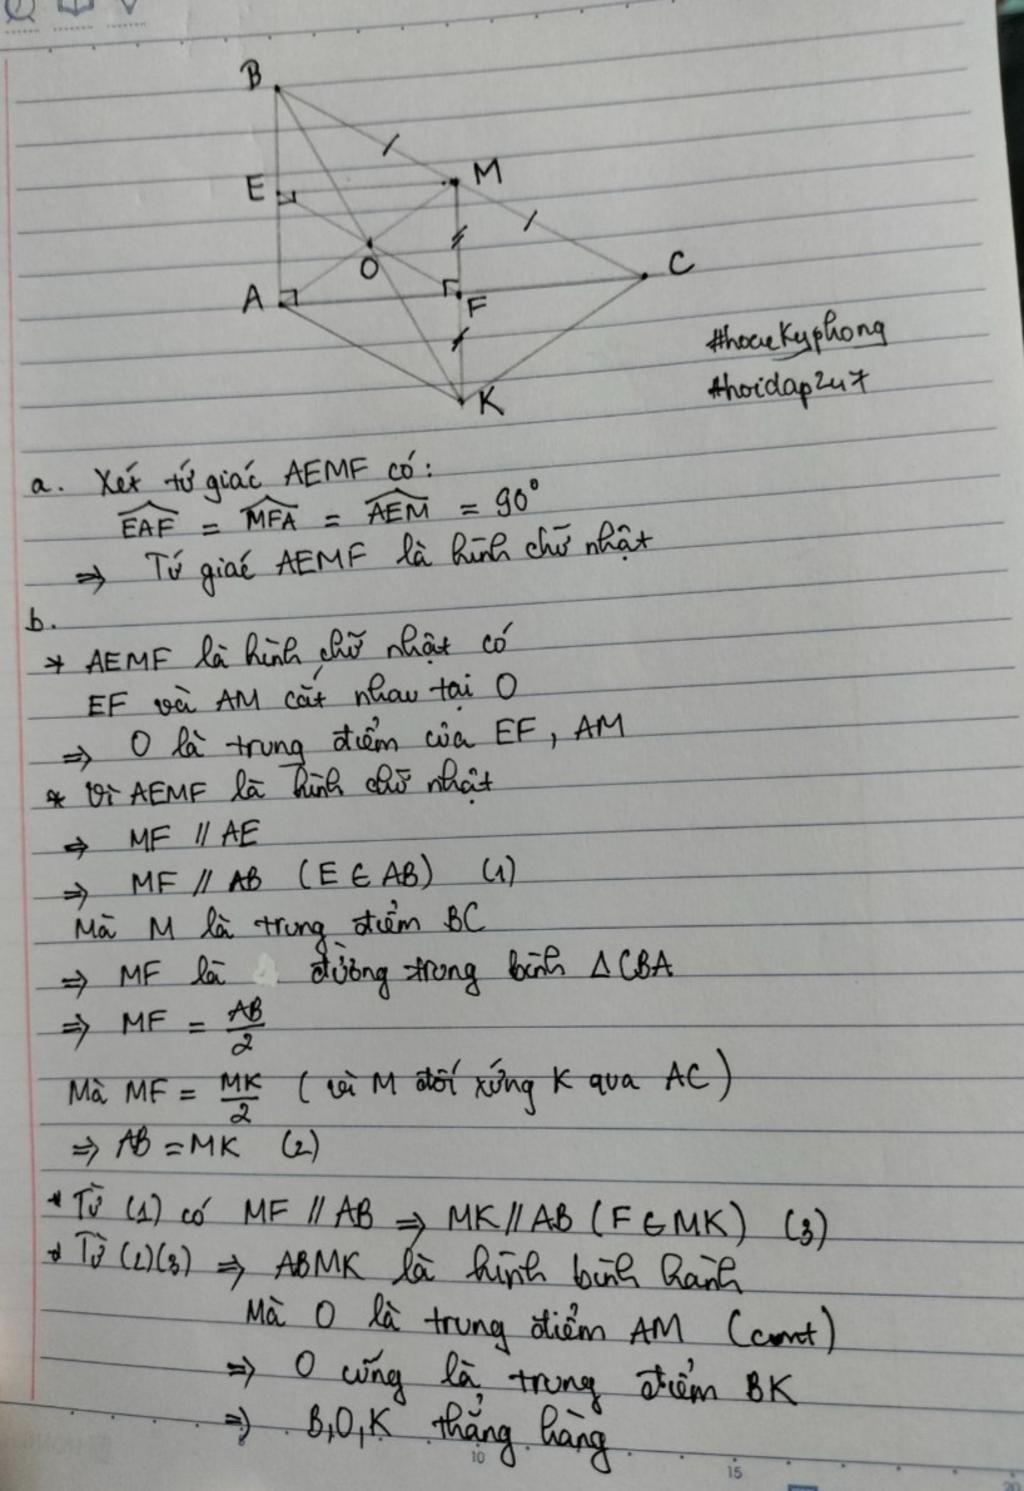 B
E
M
O
C
A
F
K
#hoidap247
a. Xét tứ giác AEMF có:
EAF = MFA = AEM = 90°
⇒ Tứ giác AEMF là hình chữ nhật
b.
* AEMF là hình chữ nhật có
EF và AM cắt nhau tại O
⇒ O là trung điểm của EF, AM
* Vì AEMF là hình chữ nhật
⇒ MF // AE
⇒ MF // AB (E ∈ AB) (1)
Mà M là trung điểm BC
⇒ MF là đường trung bình ΔCBA
⇒ MF = AB/2
Mà MF = MK/2 (vì M đối xứng K qua AC)
⇒ AB = MK (2)
* Từ (1) có MF // AB ⇒ MK // AB (F ∈ MK) (3)
* Từ (2)(3) ⇒ ABMK là hình bình hành
Mà O là trung điểm AM (cmt)
⇒ O cũng là trung điểm BK
⇒ B, O, K thẳng hàng
10
15
20